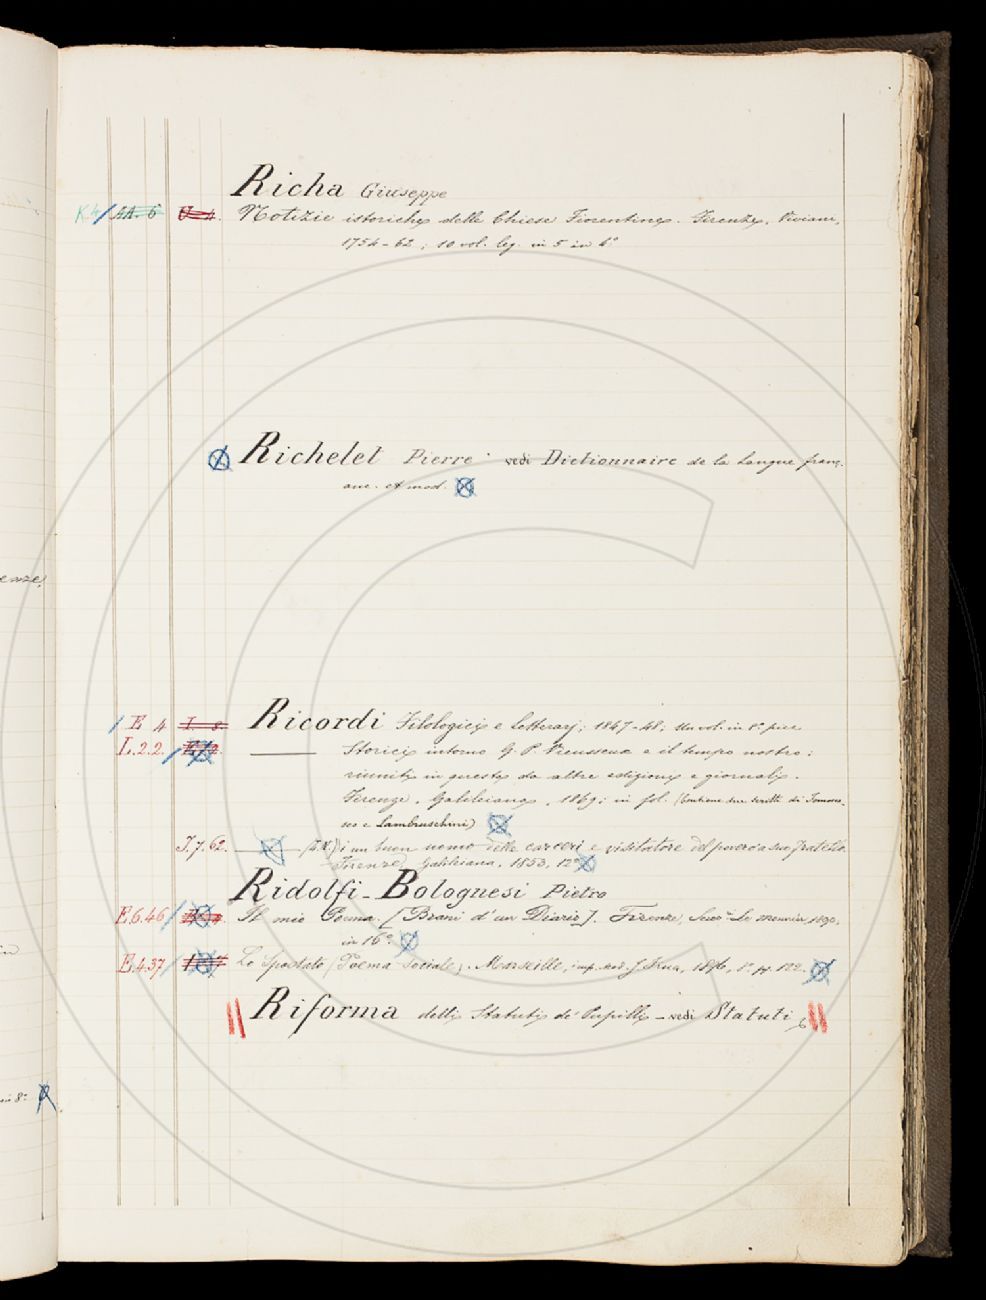 Richa Giuseppe
K.4 / AA. 6 U. 4. Notizie istoriche delle Chiese Fiorentine. Firenze, Viviani,
1754-62; 10 vol. leg. in 5 in 6°
Richelet Pierre vedi Dictionnaire de la Langue franç.
anc. et mod.
/ E 4 I 8 Ricordi Filologici e Letterarj; 1847-48; Un vol. in 8° picc
L.2.2. / ——— Storici intorno G. P. Vieusseux e il tempo nostro:
riuniti in questa da altre edizioni e giornali.
Firenze, Galileiana, 1869; in fol. (Contiene due scritti di Tomma-
seo e Lambruschini)
I.7.62. ——— di un buon uomo delle carceri e visitatore del povero a suo fratello
Firenze, Galileiana, 1853, 12°
Ridolfi-Bolognesi Pietro
E.6.46 / Il mio Poema. [Brani d'un Diario]. Firenze, Succ. Le Monnier, 1890,
in 16°
E.4.37 / Lo Spostato (Poema Sociale). Marseille, imp. 1896, 8° pp. 122.
Riforma delli Statuti de' Pupilli - vedi Statuti
enze,
in 8°